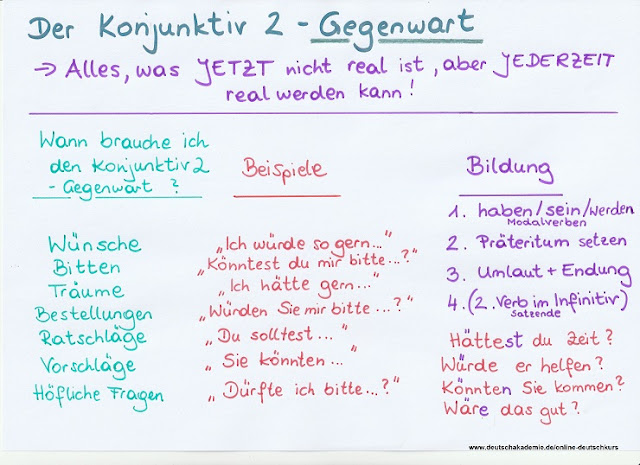 Der Konjunktiv 2 - Gegenwart
→ Alles, was JETZT nicht real ist, aber JEDERZEIT
real werden kann!
Wann brauche ich
den Konjunktiv 2
- Gegenwart?
Wünsche
Bitten
Träume
Bestellungen
Ratschläge
Vorschläge
Höfliche Fragen
Beispiele
„Ich würde so gern..."
„Könntest du mir bitte...?"
„Ich hätte gern..."
„Würden Sie mir bitte...?"
„Du solltest..."
„Sie könnten..."
„Dürfte ich bitte...?"
Bildung
1. haben/sein/werden
Modalverben
2. Präteritum setzen
3. Umlaut + Endung
4. (2. Verb im Infinitiv)
Satzende
Hättest du Zeit?
Würde er helfen?
Könnten Sie kommen?
Wäre das gut?
www.deutschakademie.de/online-deutschkurs